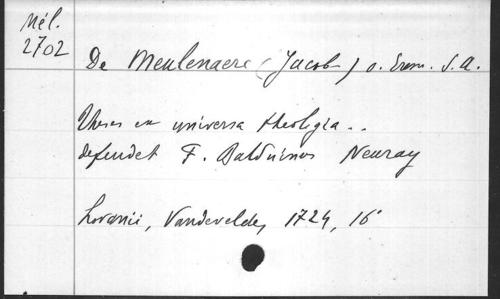 Mél.
2702
De Meulenaere (Jacob) o. Erem. S. A.
Theses ex universa theologia..
defendet F. Balduinus Neuray
Lovanii, Vandevelde, 1724, 16°